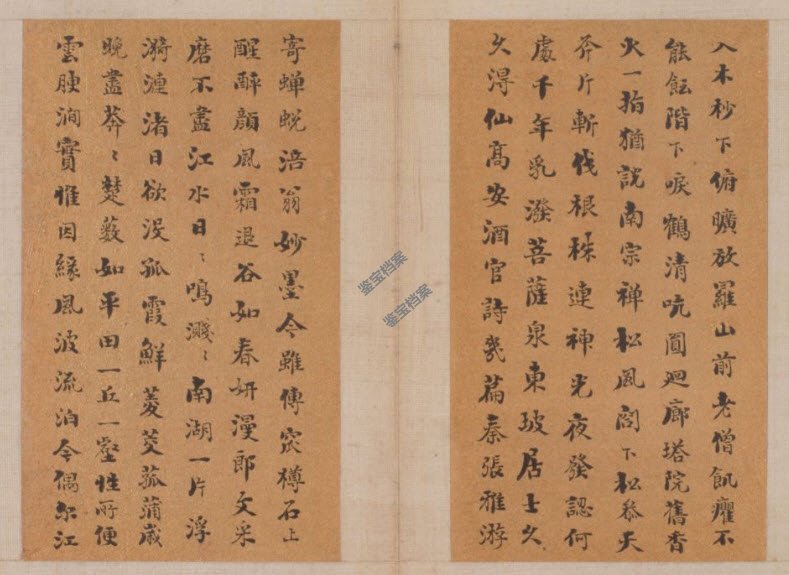 入木杪下俯曠放羅山前老僧飢癯不
能飯階下唳鶴清吭圓迴廊塔院舊香
火一指猶説南宗禪松風閣下松叅天
斧斤斬伐根株連神光夜發認何
處千年乳潑菩薩泉東坡居士久
久淂仙高安酒官詩幾篇秦張雅游
寄蟬蛻涪翁妙墨今雖傳窊樽石上
醒醉顏風霜退谷如春妍漫郎文采
磨不盡江水日〻鳴濺〻南湖一片浮
漪漣渚日欲沒孤霞鮮菱茭菰蒲歲
晚盡莽〻楚藪如平田一丘一壑性所便
雲腴澗實惟因緣風波流泊今偶尔江
鉴宝档案
鉴宝档案